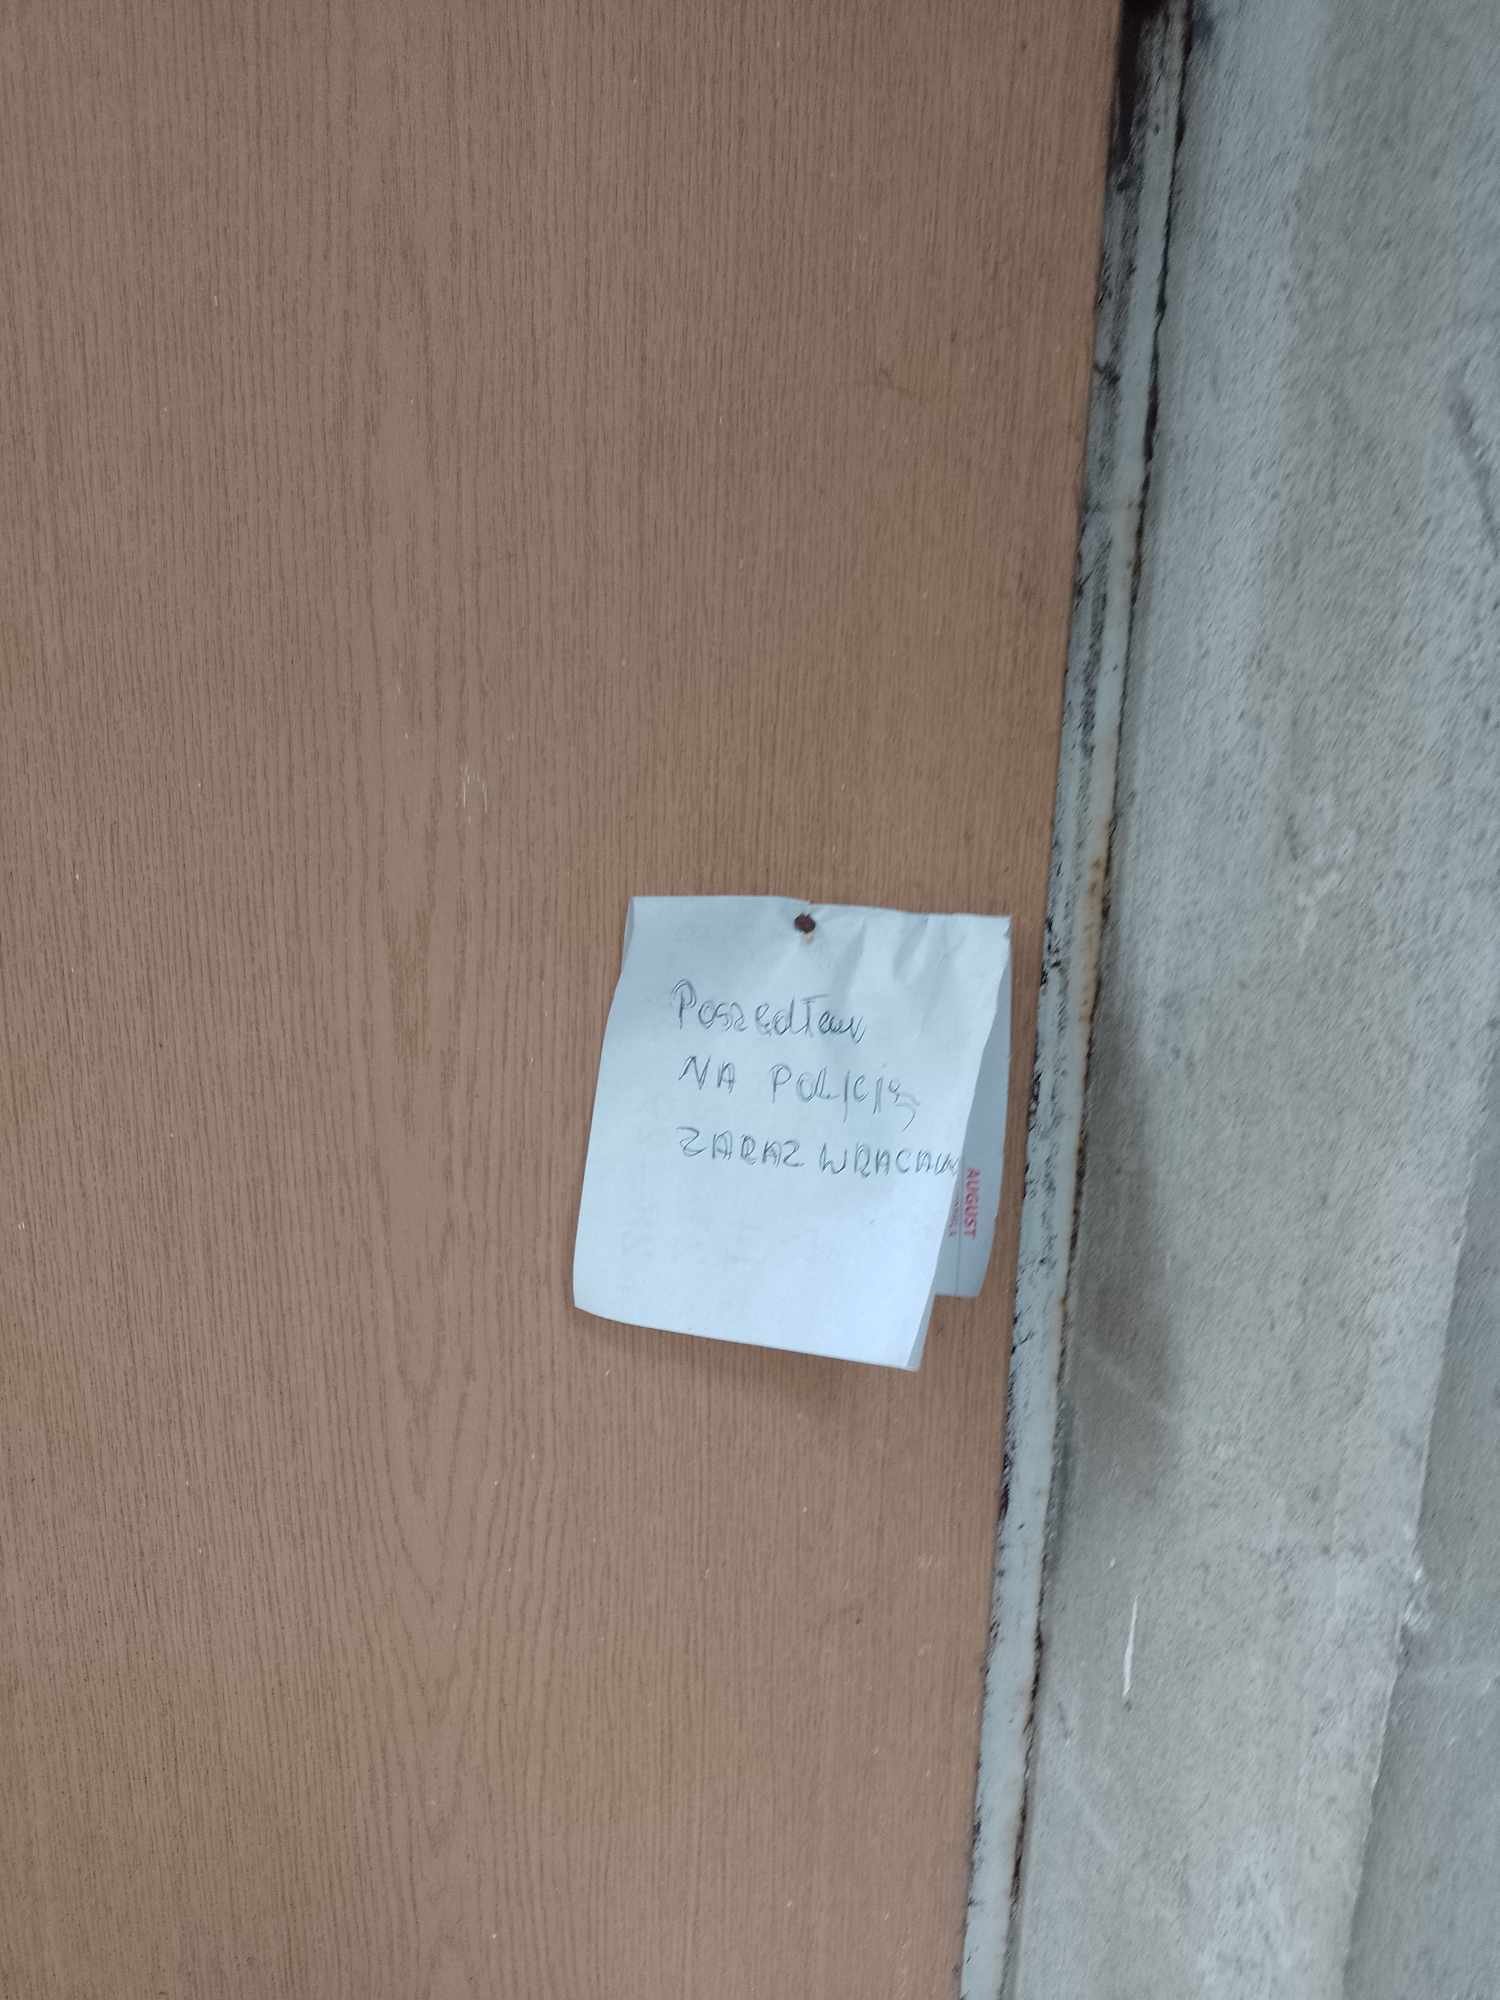 Poszedłem
NA POLICJĘ
ZARAZ WRACAM
AUGUST